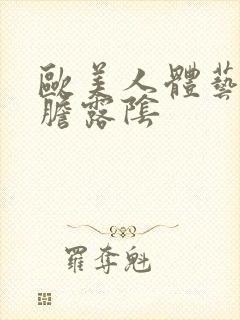 歐美人體藝
膽露陰
羅奪魁